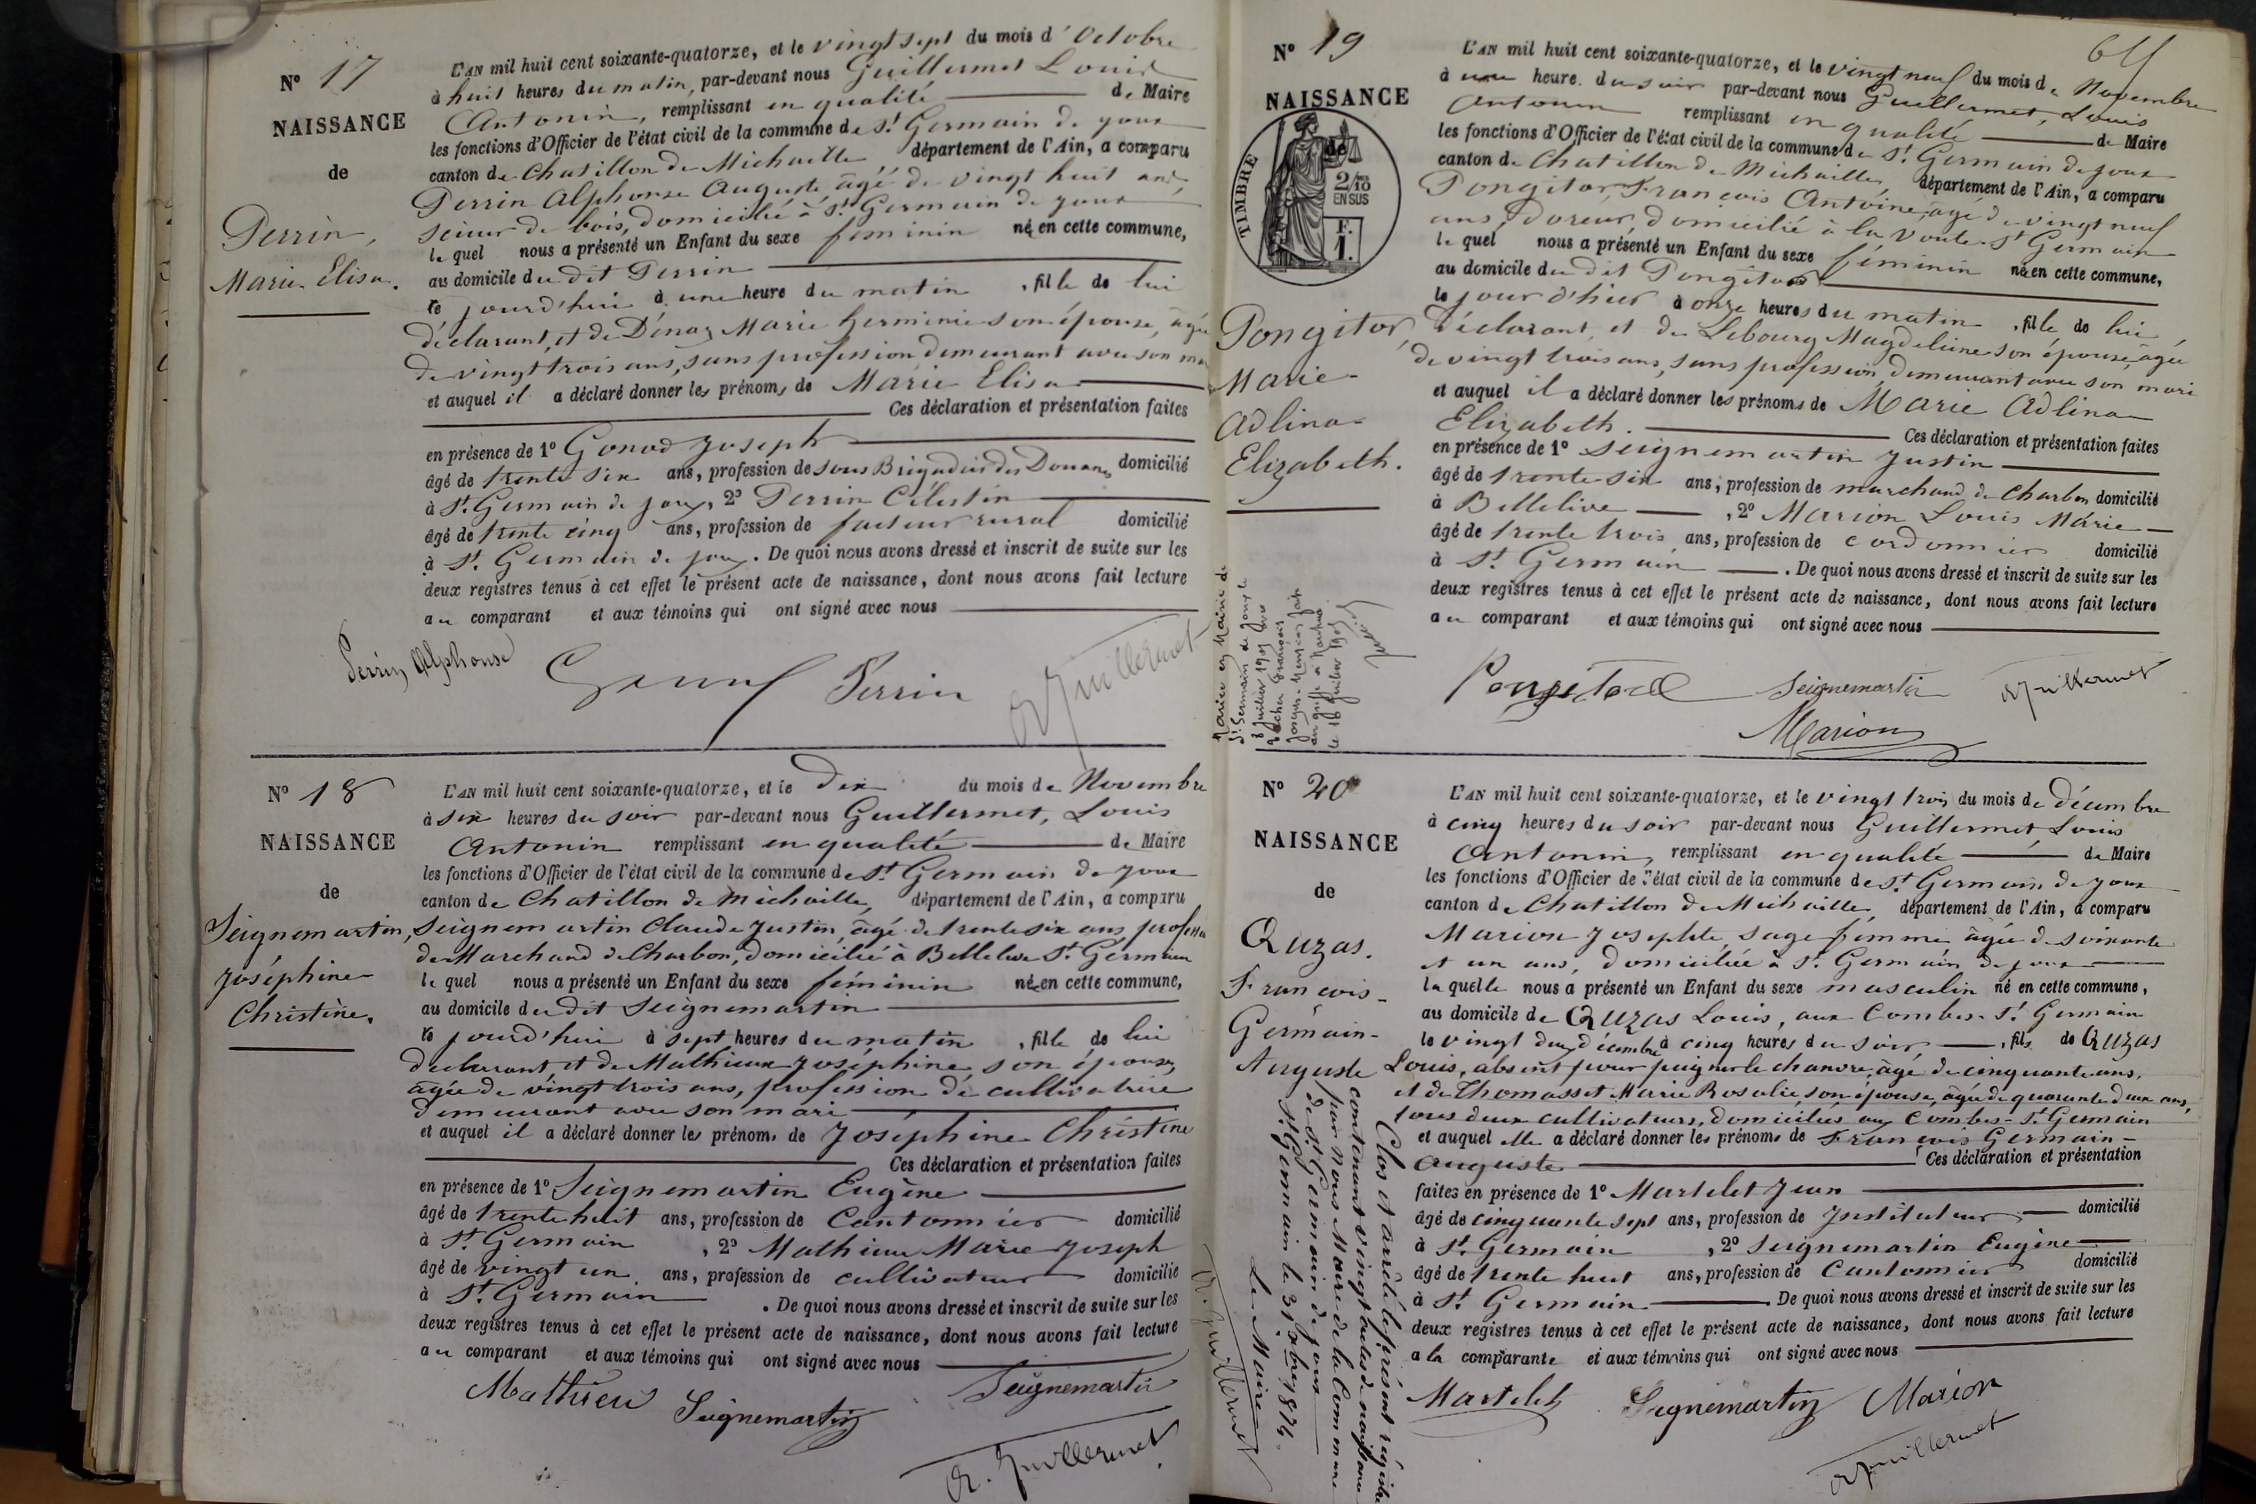 N° 17
NAISSANCE
de
Perrin,
Marie Elisa.
L'AN mil huit cent soixante-quatorze, et le vingt sept du mois d'Octobre
à huit heures du matin, par-devant nous Guillermet Louis
Antonin, remplissant en qualité de Maire
les fonctions d'Officier de l'état civil de la commune de St Germain de joux
canton de Chatillon de Michaille, département de l'Ain, a comparu
Perrin Alphonse Auguste âgé de vingt huit ans,
scieur de bois, domicilié à St Germain de joux
lequel nous a présenté un Enfant du sexe féminin né en cette commune,
au domicile du dit Perrin
le jourd'hui à une heure du matin, fille de lui
déclarant, et de Dénaz Marie herminie son épouse, âgée
de vingt trois ans, sans profession demeurant avec son mari
et auquel il a déclaré donner les prénoms de Marie Elisa
Ces déclaration et présentation faites
en présence de 1° Gonod Joseph
âgé de trente six ans, profession de sous Brigadier des Douanes domicilié
à St Germain de joux, 2° Perrin Célestin
âgé de trente cinq ans, profession de facteur rural domicilié
à St Germain de joux. De quoi nous avons dressé et inscrit de suite sur les
deux registres tenus à cet effet le présent acte de naissance, dont nous avons fait lecture
au comparant et aux témoins qui ont signé avec nous
Perrin Alphonse Gonod Perrin A Guillermet
N° 18
NAISSANCE
de
Seignemartin,
Joséphine
Christine.
L'AN mil huit cent soixante-quatorze, et le dix du mois de Novembre
à six heures du soir par-devant nous Guillermet, Louis
Antonin remplissant en qualité de Maire
les fonctions d'Officier de l'état civil de la commune de St Germain de joux
canton de Chatillon de Michaille, département de l'Ain, a comparu
Seignemartin Claude Justin, âgé de trente six ans profession
de Marchand de Charbon, domicilié à Bellelive St Germain
lequel nous a présenté un Enfant du sexe féminin né en cette commune,
au domicile du dit Seignemartin
le jourd'hui à sept heures du matin, fille de lui
déclarant, et de Mathieux Joséphine, son épouse,
âgée de vingt trois ans, profession de cultivatrice
demeurant avec son mari
et auquel il a déclaré donner les prénoms de Joséphine Christine
Ces déclaration et présentation faites
en présence de 1° Seignemartin Eugène
âgé de trente huit ans, profession de Cantonnier domicilié
à St Germain, 2° Mathieu Marie Joseph
âgé de vingt un ans, profession de cultivateur domicilié
à St Germain. De quoi nous avons dressé et inscrit de suite sur les
deux registres tenus à cet effet le présent acte de naissance, dont nous avons fait lecture
au comparant et aux témoins qui ont signé avec nous
Mathieu Seignemartin Seignemartin
A. Guillermet
N° 19
NAISSANCE
de
TIMBRE
2/10
EN SUS
F.
1.
Pongitor,
Marie
Adlina
Elizabeth.
L'AN mil huit cent soixante-quatorze, et le vingt neuf du mois de Novembre
à une heure du soir par-devant nous Guillermet, Louis
Antonin remplissant en qualité de Maire
les fonctions d'Officier de l'état civil de la commune de St Germain de joux
canton de Chatillon de Michaille, département de l'Ain, a comparu
Pongitor, François Antoine, âgé de vingt neuf
ans, doreur, domicilié à la Voute St Germain
lequel nous a présenté un Enfant du sexe féminin né en cette commune,
au domicile du dit Pongitor
le jour d'hier à onze heures du matin, fille de lui
déclarant, et de Lebourg Magdeleine son épouse, âgée
de vingt trois ans, sans profession, demeurant avec son mari
et auquel il a déclaré donner les prénoms de Marie Adlina
Elizabeth. Ces déclaration et présentation faites
en présence de 1° Seignemartin Justin
âgé de trente six ans, profession de marchand de Charbon domicilié
à Bellelive, 2° Marion Louis Marie
âgé de trente trois ans, profession de cordonnier domicilié
à St Germain. De quoi nous avons dressé et inscrit de suite sur les
deux registres tenus à cet effet le présent acte de naissance, dont nous avons fait lecture
au comparant et aux témoins qui ont signé avec nous
Mariée en Mairie de
St Germain de Joux le
8 Juillet 1905 avec
au greffe à Nantua
le 18 Juillet 1905
Seignemartin A Guillermet
Marion
N° 20
NAISSANCE
de
Quzas.
François
Germain
Auguste
L'AN mil huit cent soixante-quatorze, et le vingt trois du mois de décembre
à cinq heures du soir par-devant nous Guillermet Louis
Antonin, remplissant en qualité de Maire
les fonctions d'Officier de l'état civil de la commune de St Germain de joux
canton de Chatillon de Michaille, département de l'Ain, a comparu
Marion Josephte, sage femme, âgée de soixante
et un ans, domiciliée à St Germain de joux
laquelle nous a présenté un Enfant du sexe masculin né en cette commune,
au domicile de Quzas Louis, aux Combes St Germain
le vingt deux décembre à cinq heures du soir, fils de Quzas
Louis, absent pour peigner le chanvre, âgé de cinquante ans,
et de Thomasset Marie Rosalie, son épouse, âgée de quarante deux ans,
tous deux cultivateurs, domiciliés aux Combes - St Germain
et auquel elle a déclaré donner les prénoms de François Germain
Auguste Ces déclaration et présentation
faites en présence de 1° Martelet Jean
âgé de cinquante sept ans, profession de Instituteur domicilié
à St Germain, 2° Seignemartin Eugène
âgé de trente huit ans, profession de Cantonnier domicilié
à St Germain. De quoi nous avons dressé et inscrit de suite sur les
deux registres tenus à cet effet le présent acte de naissance, dont nous avons fait lecture
a la comparante et aux témoins qui ont signé avec nous
Martelet Seignemartin Marion
A Guillermet
Clos et arrêté le présent registre
contenant vingt actes de naissance
par nous Maire de la Commune
de St Germain de joux
St Germain le 31 xbre 1874.
Le Maire
A. Guillermet